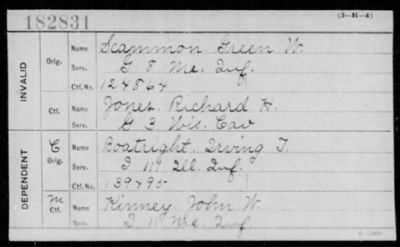 182831
(3-814)
INVALID
Orig. Name Scammon Green W.
Serv. G 8 Me. Inf.
Ctf. No. 124864
Ctf. Name Jones Richard H.
Serv. G 3 Wis. Cav
DEPENDENT
C Orig. Name Boatright Irving T.
Serv. I 117 Ill. Inf.
Ctf. No. 139495
M Ctf. Name Kinney John W.
Serv. I 11 Me. Inf